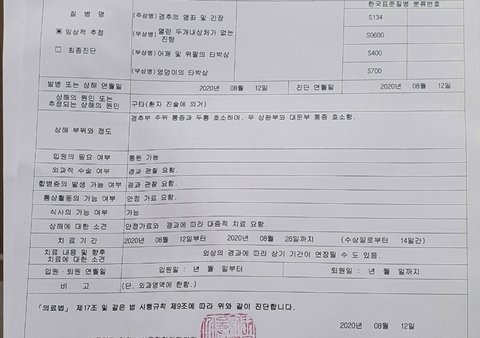 한국표준질병 분류번호
질 병 명
(주상병) 경추의 염좌 및 긴장
S134
임상적 추정
(부상병) 열린 두개내상처가 없는 진탕
S0600
최종진단
(부상병) 어깨 및 위팔의 타박상
S400
(부상병) 엉덩이의 타박상
S700
발병 또는 상해 연월일
2020년 08월 12일
진단 연월일
2020년 08월 12일
상해의 원인 또는
추정되는 상해의 원인
구타(환자 진술에 의거)
상해 부위와 정도
경추부 주위 통증과 두통 호소하며, 우 상완부와 대둔부 통증 호소함.
입원의 필요 여부
통원 가능
외과적 수술 여부
경과 관찰 요함.
합병증의 발생 가능 여부
경과 관찰 요함.
통상활동의 가능 여부
안정 가료 요함.
식사의 가능 여부
가능
상해에 대한 소견
안정가료와 경과에 따라 대증적 치료 요함.
치 료 기 간
2020년 08월 12일부터 2020년 08월 26일까지 (수상일로부터 14일간)
치료 내용 및 향후
치료에 대한 소견
외상의 경과에 따라 상기 기간이 연장될 수도 있음.
입원 · 퇴원 연월일
입원일 : 년 월 일부터
퇴원일 : 년 월 일까지
비 고
(단, 외과영역에 한함.)
「의료법」 제17조 및 같은 법 시행규칙 제9조에 따라 위와 같이 진단합니다.
2020년 08월 12일